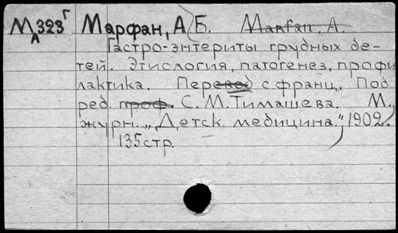 М 323 Г Марфан, А Б. Marfan, A.
Гастро-энтериты грудных де-
тей. Этиология, патогенез, профи
лактика. Перевод с франц. Под
ред. проф. С. М. Тимашева. М.,
журн. „Детск. медицина.", 1902.
135стр.